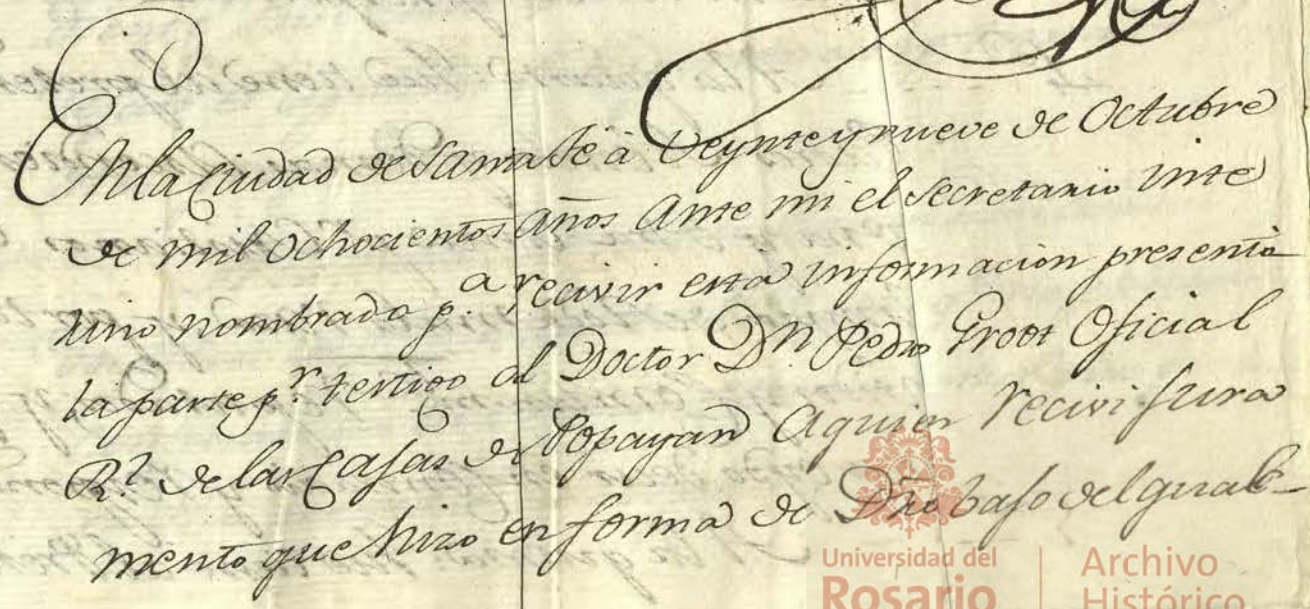 En la Ciudad de Santa fé à Veynte y nueve de Octubre
de mil ochocientos años Ante mi el Secretario inte
rino nombrado p.ª recivir esta informacion presentó
la parte p.r testigo al Doctor D.n Pedro Groot Oficial
R.l de las Casas de Popayan a quien recivi jura
mento que hizo en forma de Dro bajo del qual
Universidad del
Rosario
Archivo
Histórico